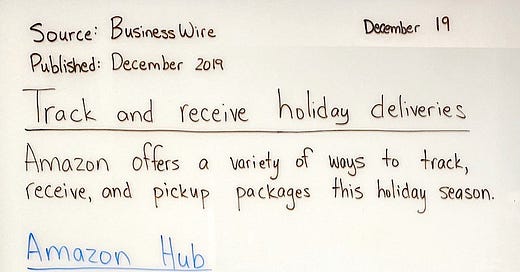 Source: Business Wire December 19
Published: December 2019
Track and receive holiday deliveries
Amazon offers a variety of ways to track,
receive, and pickup packages this holiday season.
Amazon Hub